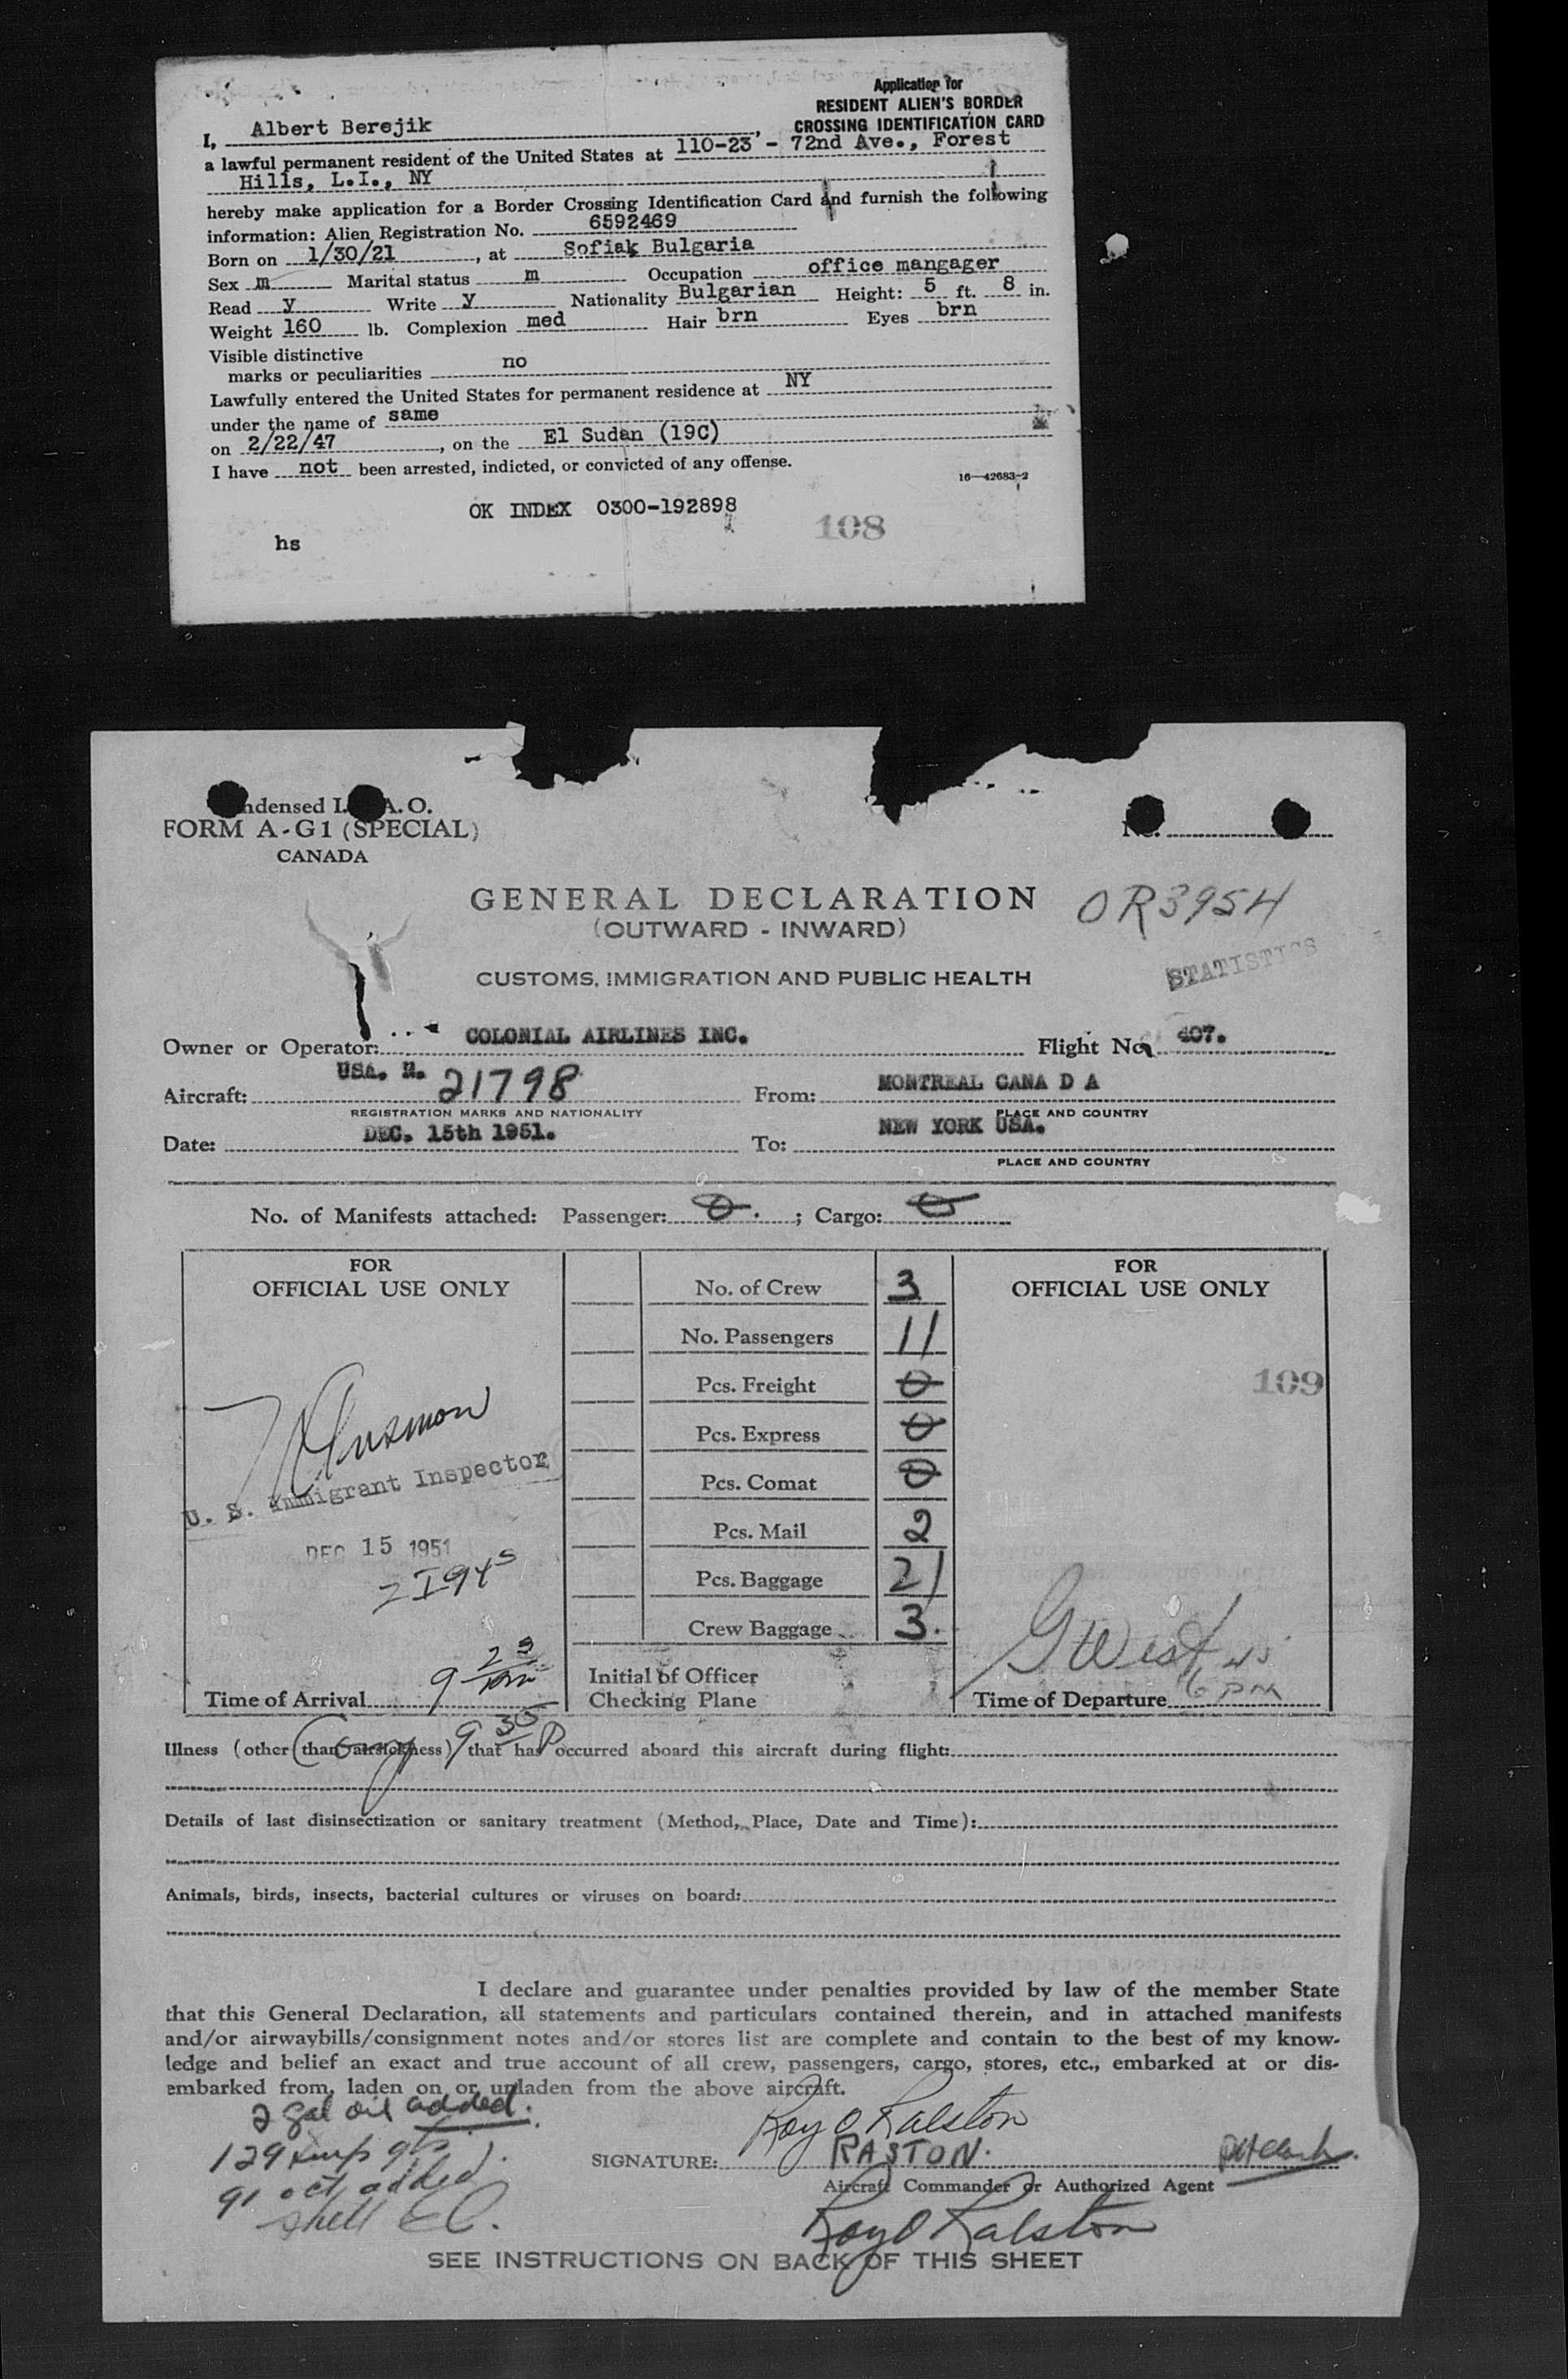 Application for
RESIDENT ALIEN'S BORDER
CROSSING IDENTIFICATION CARD
I, Albert Berejik,
a lawful permanent resident of the United States at 110-23 - 72nd Ave., Forest
Hills, L.I., NY
hereby make application for a Border Crossing Identification Card and furnish the following
information: Alien Registration No. 6592469
Born on 1/30/21, at Sofia, Bulgaria
Sex m Marital status m Occupation office mangager
Read y Write y Nationality Bulgarian Height: 5 ft. 8 in.
Weight 160 lb. Complexion med Hair brn Eyes brn
Visible distinctive
marks or peculiarities no
Lawfully entered the United States for permanent residence at NY
under the name of same
on 2/22/47, on the El Sudan (19C)
I have not been arrested, indicted, or convicted of any offense.
16—42683-2
OK INDEX 0300-192898
108
hs
ndensed I. A.O.
FORM A-G1 (SPECIAL)
CANADA
No.
GENERAL DECLARATION
OR3954
(OUTWARD - INWARD)
STATISTICS
CUSTOMS, IMMIGRATION AND PUBLIC HEALTH
Owner or Operator: COLONIAL AIRLINES INC. Flight No. 407.
Aircraft: USA. N. 21798 From: MONTREAL CANA D A
REGISTRATION MARKS AND NATIONALITY PLACE AND COUNTRY
Date: DEC. 15th 1951. To: NEW YORK USA.
PLACE AND COUNTRY
No. of Manifests attached: Passenger: 0. ; Cargo: 0
FOR
OFFICIAL USE ONLY
No. of Crew 3
No. Passengers 11
Pcs. Freight 0
Pcs. Express 0
Pcs. Comat 0
Pcs. Mail 2
Pcs. Baggage 21
Crew Baggage 3.
Initial of Officer
Checking Plane
FOR
OFFICIAL USE ONLY
109
U. S. Immigrant Inspector
DEC 15 1951
Time of Arrival 9
G West
Time of Departure 6 PM
Illness (other than airsickness) that has occurred aboard this aircraft during flight:
9 30 P
Details of last disinsectization or sanitary treatment (Method, Place, Date and Time):
Animals, birds, insects, bacterial cultures or viruses on board:
I declare and guarantee under penalties provided by law of the member State
that this General Declaration, all statements and particulars contained therein, and in attached manifests
and/or airwaybills/consignment notes and/or stores list are complete and contain to the best of my know-
ledge and belief an exact and true account of all crew, passengers, cargo, stores, etc., embarked at or dis-
embarked from, laden on or unladen from the above aircraft.
2 gal oil added.
129 imp gls
91 oct added
Shell
Roy O Ralston
SIGNATURE: RASTON.
Aircraft Commander or Authorized Agent
Roy O Ralston
SEE INSTRUCTIONS ON BACK OF THIS SHEET